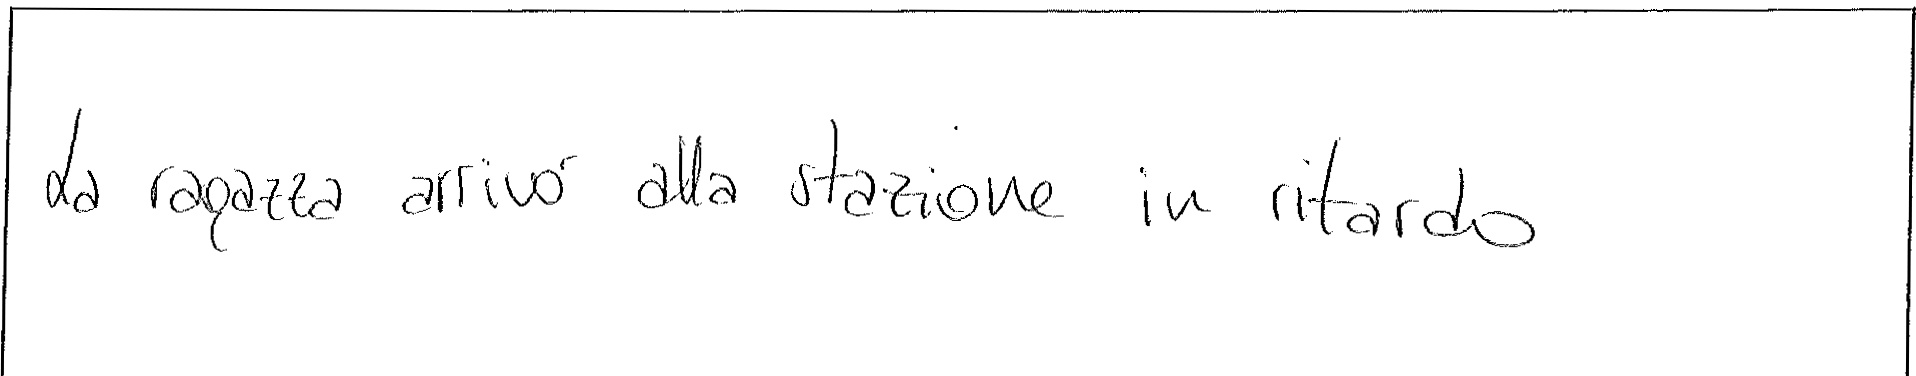 La ragazza arrivò alla stazione in ritardo